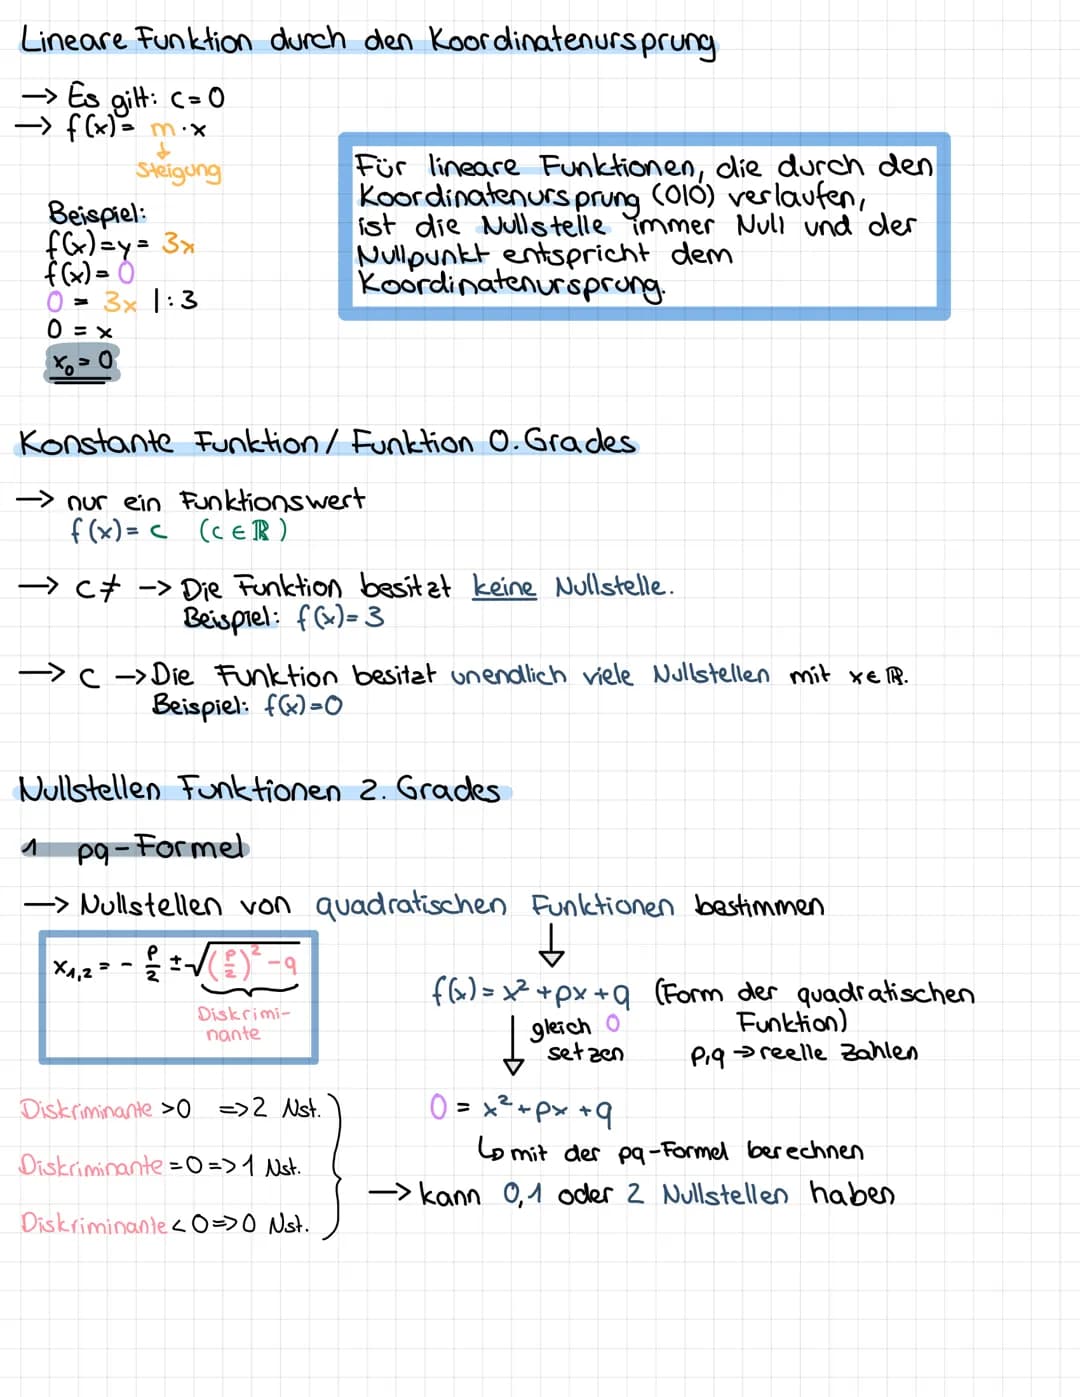 Lineare Funktion durch den Koordinatenursprung
→ Es gilt: c = 0
→ f(x) = m · x
↓
Steigung
Für lineare Funktionen, die durch den
Koordinatenursprung (0|0) verlaufen,
ist die Nullstelle immer Null und der
Nullpunkt entspricht dem
Koordinatenursprung.
Beispiel:
f(x) = y = 3x
f(x) = 0
0 = 3x |:3
0 = x
x₀ = 0
Konstante Funktion / Funktion 0. Grades
→ nur ein Funktionswert
f(x) = c (c ∈ ℝ)
→ c ≠ → Die Funktion besitzt keine Nullstelle.
Beispiel: f(x) = 3
→ c → Die Funktion besitzt unendlich viele Nullstellen mit x ∈ ℝ.
Beispiel: f(x) = 0
Nullstellen Funktionen 2. Grades
1 pq-Formel
→ Nullstellen von quadratischen Funktionen bestimmen
x₁,₂ = - p/2 ± √((p/2)² - q)
Diskrimi-
nante
f(x) = x² + px + q (Form der quadratischen
Funktion)
gleich 0
setzen
p,q → reelle Zahlen
Diskriminante > 0 => 2 Nst.
Diskriminante = 0 => 1 Nst.
Diskriminante < 0 => 0 Nst.
0 = x² + px + q
↳ mit der pq-Formel berechnen
→ kann 0,1 oder 2 Nullstellen haben